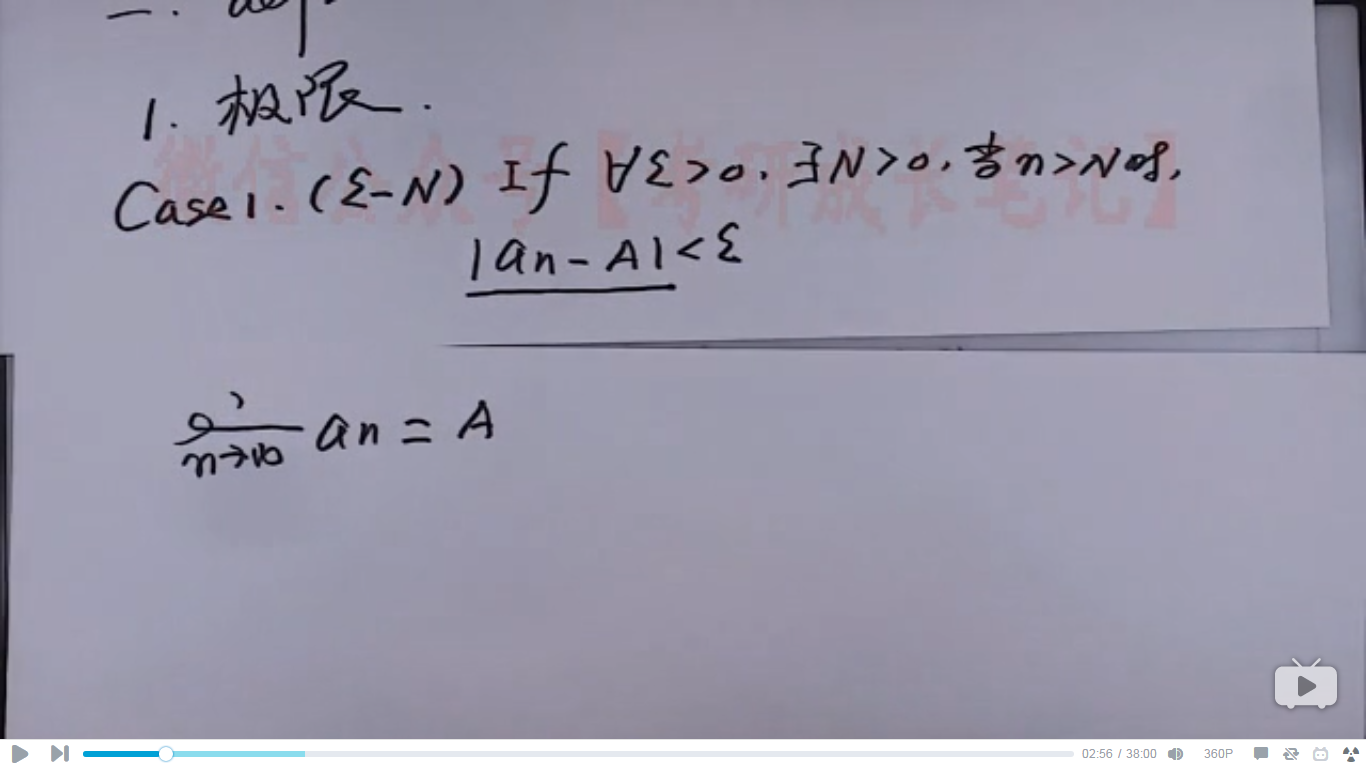 一. def
1. 极限.
微信公众号【考研成长笔记】
Case 1. (ε-N) If ∀ε>0, ∃N>0, 当n>N时,
|an - A| < ε
lim n→∞ an = A
02:56 / 38:00 360P